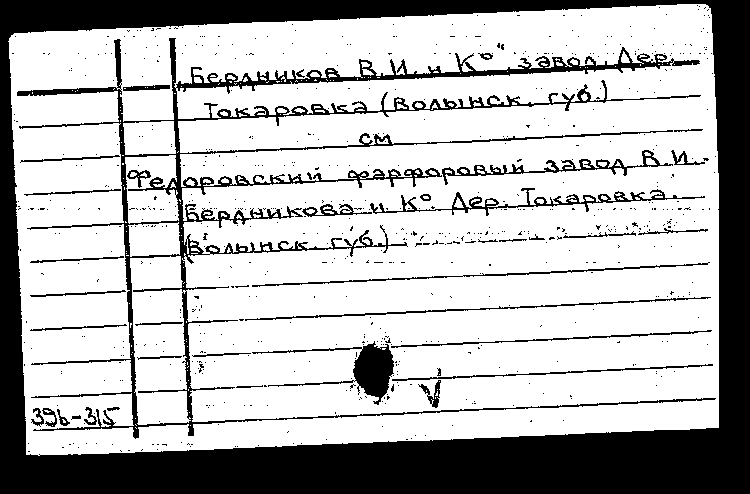 „Бердников В.И. и К°“, завод. Дер.
Токаровка (Волынск. губ.)
см
Федоровский фарфоровый завод В.И.
Бердникова и К°. Дер. Токаровка.
(Волынск. губ.)
V
39b-315